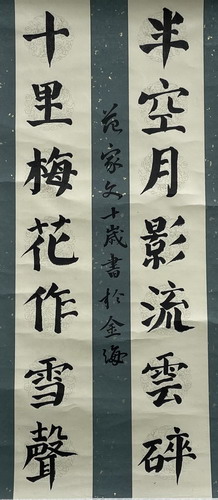 半空月影流雲碎
十里梅花作雪聲
范家文十歲書於金海